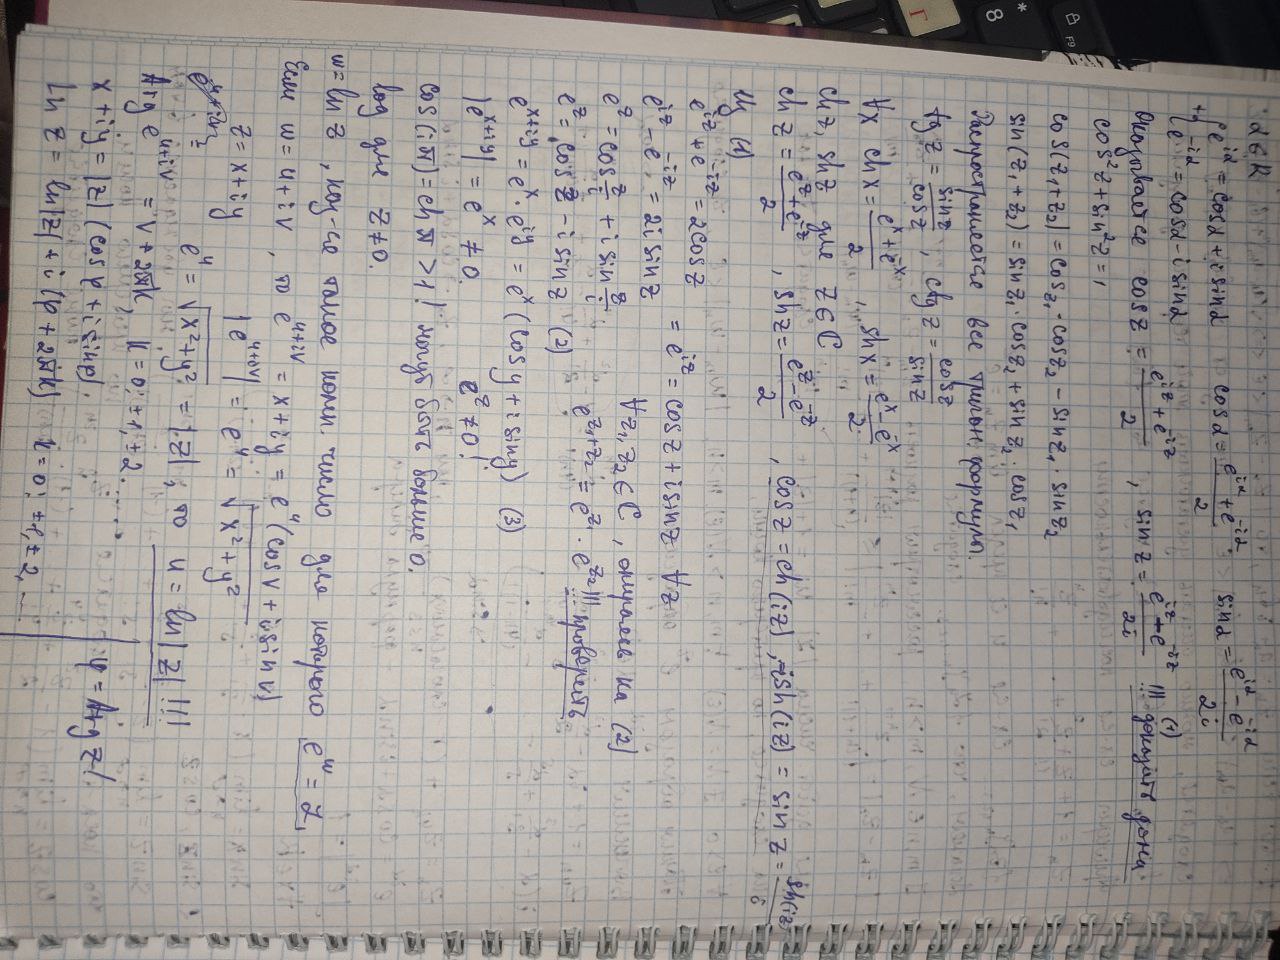 α∈R
+{ e^{iα} = cosα + i sinα    cosα = (e^{iα} + e^{-iα})/2    sinα = (e^{iα} - e^{-iα})/2i
e^{-iα} = cosα - i sinα
cos z = (e^{iz} + e^{-iz})/2 , sin z = (e^{iz} + e^{-iz})/2i (1) !!! доказать дома
cos²z + sin²z = 1
cos(z₁+z₂) = cosz₁·cosz₂ - sinz₁·sinz₂
sin(z₁+z₂) = sinz₁·cosz₂ + sinz₂·cosz₁
все тригон. формулы.
tg z = sinz/cosz , ctg z = cosz/sinz
∀x ch x = (e^x + e^{-x})/2 , sh x = (e^x - e^{-x})/2
ch z, sh z для z∈C
ch z = (e^z + e^{-z})/2 , sh z = (e^z - e^{-z})/2 , cos z = ch(iz), -i sh(iz) = sin z = sh(iz)/i
Из (1)
e^{iz} + e^{-iz} = 2cosz = e^{iz} = cosz + i sinz ∀z
e^{iz} - e^{-iz} = 2i sinz
e^z = cos z/i + i sin z/i    ∀z₁,z₂∈C , опираясь на (2)
e^z = cos z - i sin z (2)    e^{z₁+z₂} = e^{z₁}·e^{z₂} !!! проверить
e^{x+iy} = e^x·e^{iy} = e^x(cosy + i siny) (3)
|e^{x+iy}| = e^x ≠ 0.    e^z ≠ 0!
cos(iπ) = ch π > 1! могут быть больше 0.
log для z≠0.
w = ln z, такое комп число для которого e^w = z
Если w = u+iv , то e^{u+iv} = x+iy = e^u(cosv + i sinv)
z = x+iy    |e^{u+iv}| = e^u = √(x²+y²)
e^u = √(x²+y²) = |z|, то u = ln|z| !!!
Arg e^{u+iv} = v + 2πk k=0, ±1, ±2....
x+iy = |z|(cosφ + i sinφ)    φ = Arg z!
ln z = ln|z| + i(φ + 2πk) k=0, ±1, ±2, ...